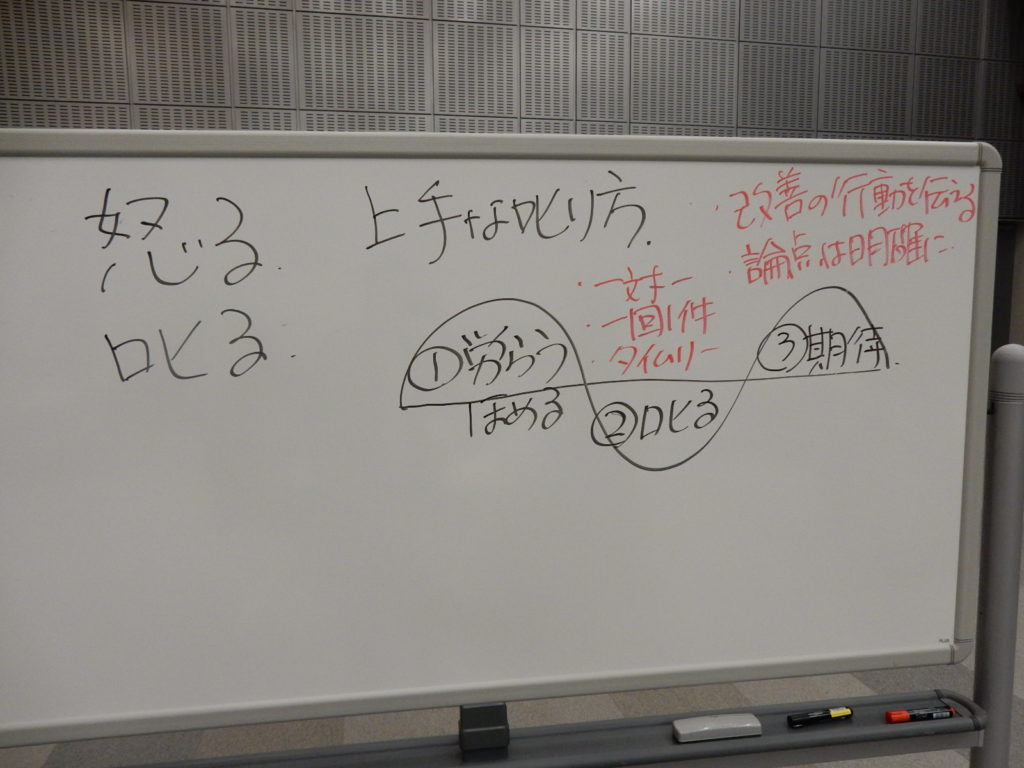 怒る.
叱る.
上手な叱り方.
・改善の行動を伝る
・論点は明確に
・一対一
・一回1件
・タイムリー
①労らう
ほめる
②叱る
③期待.
PLUS